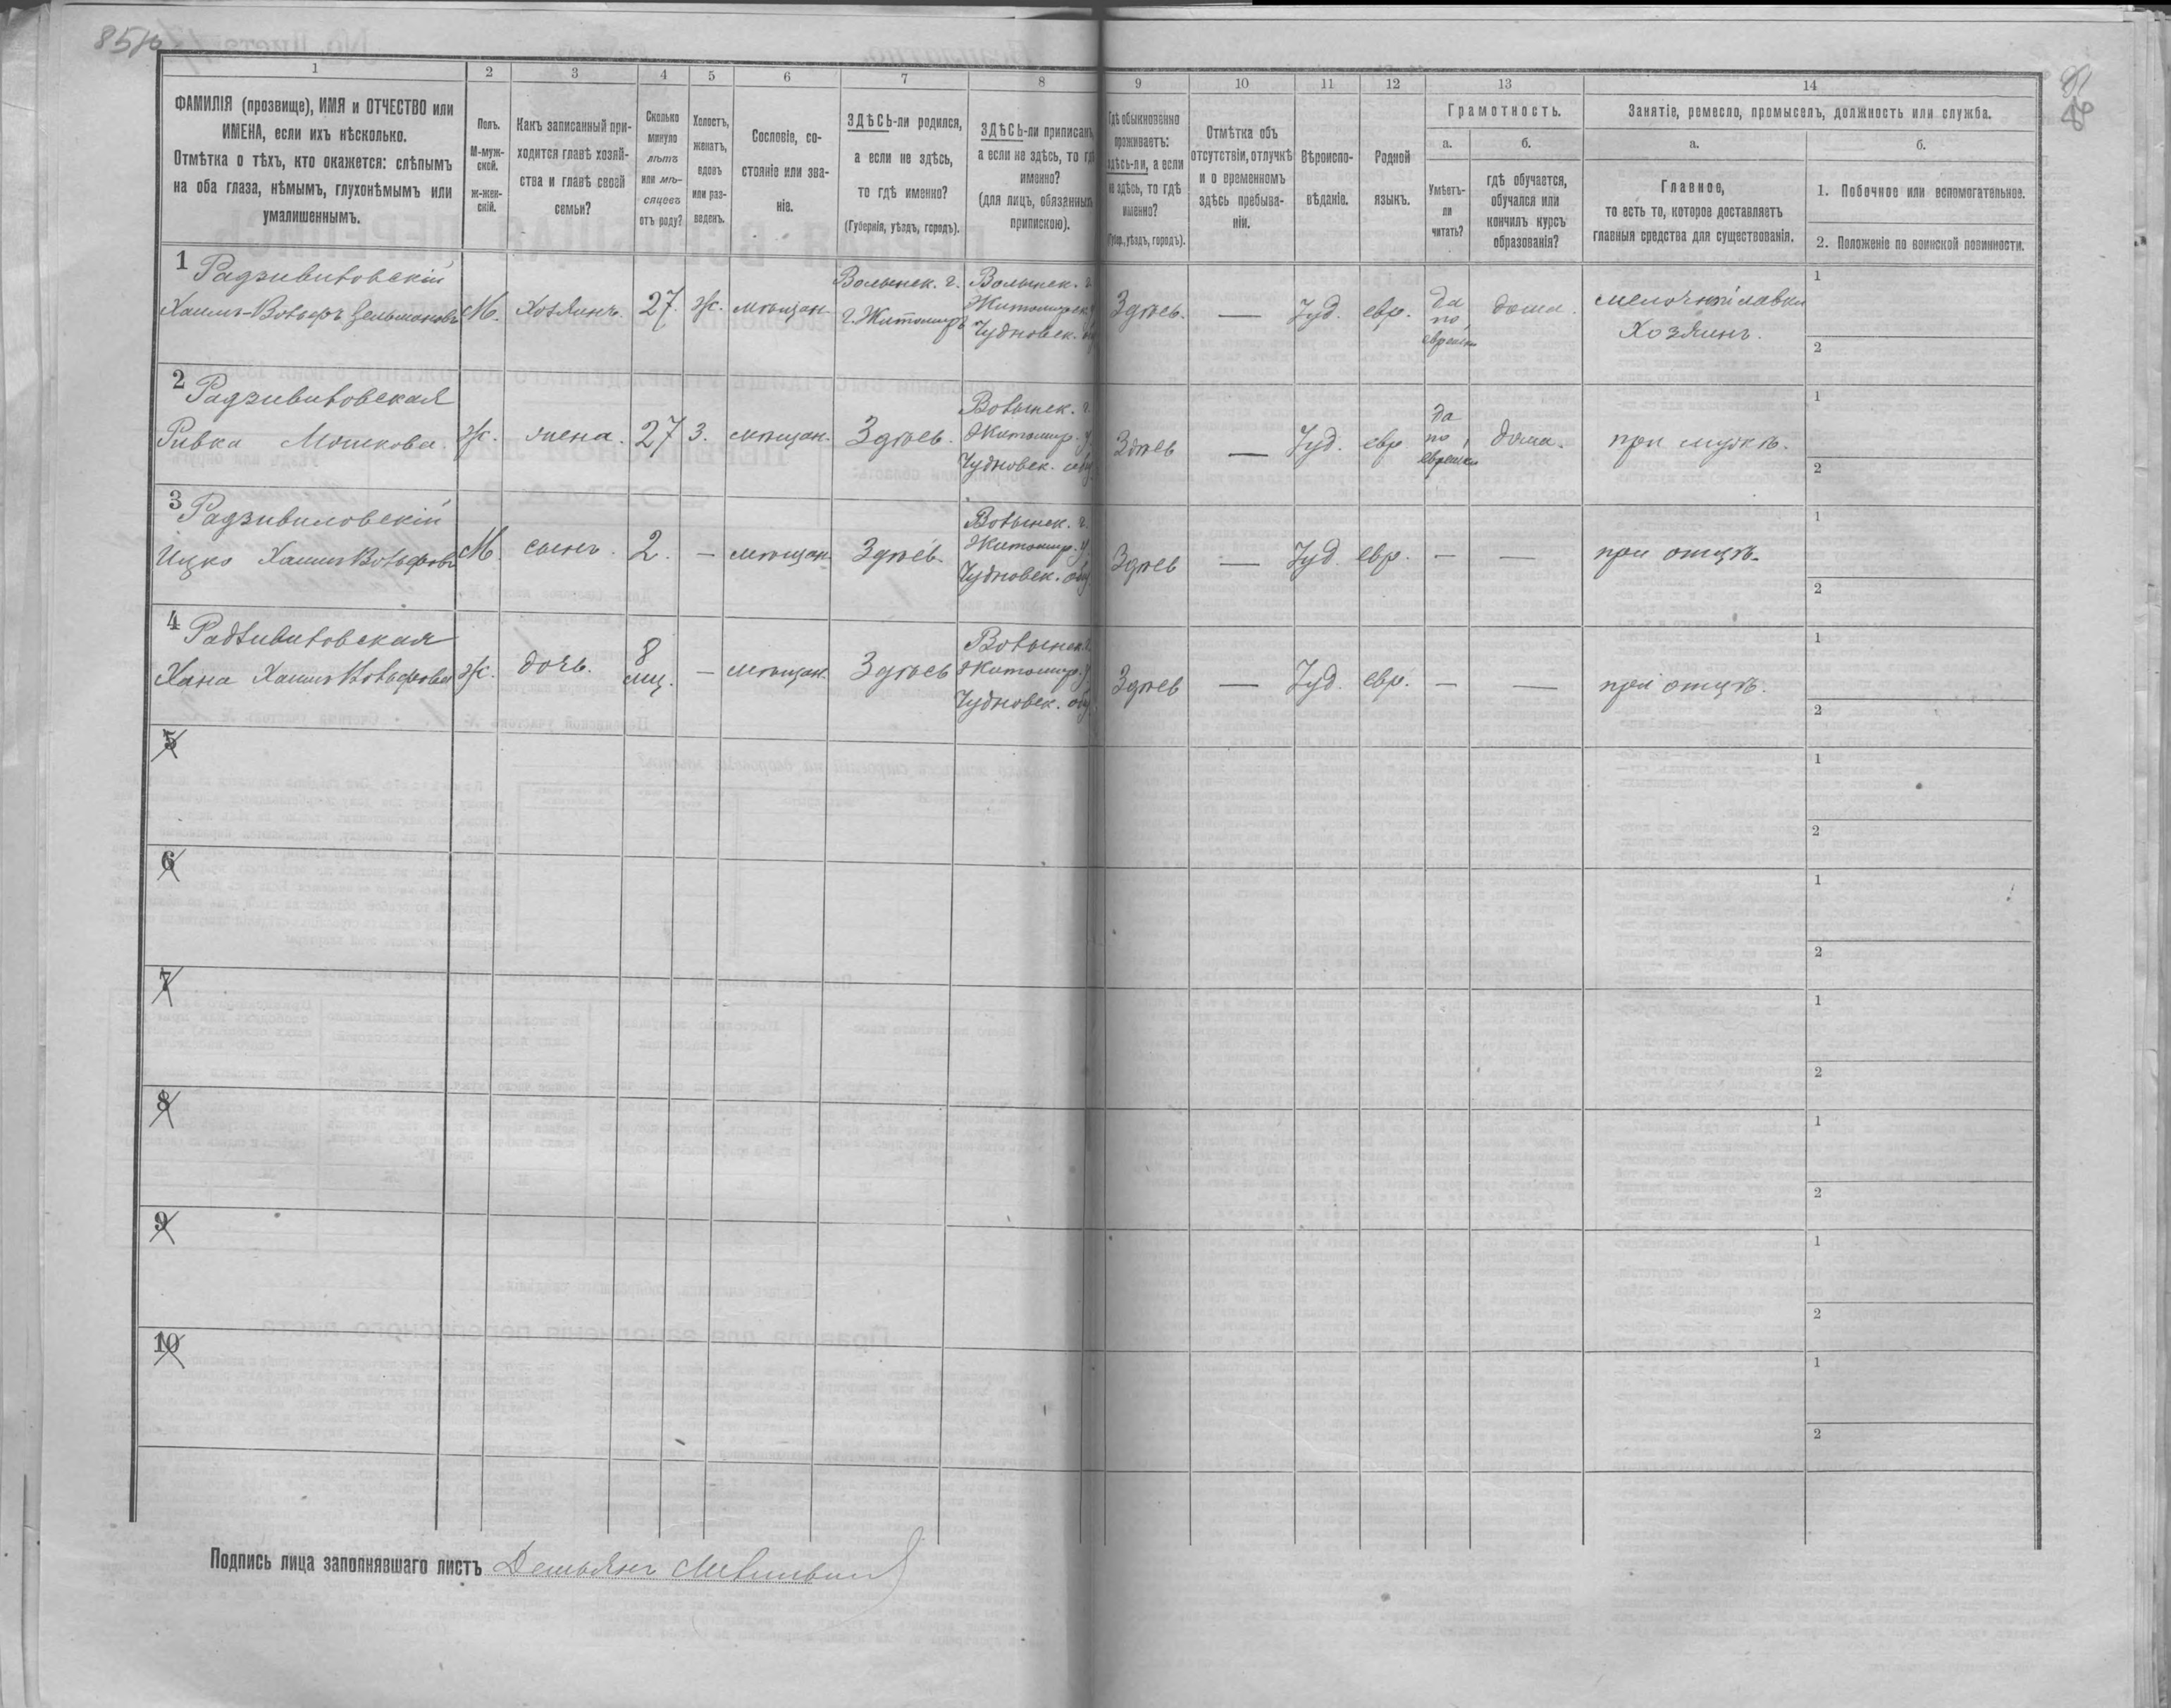 85 об
1
2
3
4
5
6
7
8
9
10
11
12
13
14
ФАМИЛІЯ (прозвище), ИМЯ и ОТЧЕСТВО или
ИМЕНА, если ихъ нѣсколько.
Отмѣтка о тѣхъ, кто окажется: слѣпымъ
на оба глаза, нѣмымъ, глухонѣмымъ или
умалишеннымъ.
Полъ.
М-муж-
ской.
ж-жен-
скій.
Какъ записанный при-
ходится главѣ хозяй-
ства и главѣ своей
семьи?
Сколько
минуло
лѣтъ
или мѣ-
сяцевъ
отъ роду?
Холостъ,
женатъ,
вдовъ
или раз-
веденъ.
Сословіе, со-
стояніе или зва-
ніе.
ЗДѢСЬ-ли родился,
а если не здѣсь,
то гдѣ именно?
(Губернія, уѣздъ, городъ).
ЗДѢСЬ-ли приписанъ,
а если не здѣсь, то гдѣ
именно?
(для лицъ, обязанныхъ
припискою).
Гдѣ обыкновенно
проживаетъ:
здѣсь-ли, а если
не здѣсь, то гдѣ
именно?
(Губер., уѣздъ, городъ).
Отмѣтка объ
отсутствіи, отлучкѣ
и о временномъ
здѣсь пребыва-
ніи.
Вѣроиспо-
вѣданіе.
Родной
языкъ.
Грамотность.
а.
б.
Умѣетъ-
ли
читать?
гдѣ обучается,
обучался или
кончилъ курсъ
образованія?
Занятіе, ремесло, промыселъ, должность или служба.
а.
б.
Главное,
то есть то, которое доставляетъ
главныя средства для существованія.
1. Побочное или вспомогательное.
2. Положеніе по воинской повинности.
1 Радзивиловскій
Хаимъ-Вольфъ Зельмановъ
М.
Хозяинъ.
27.
Ж.
мѣщан.
Волынск. г.
г. Житомиръ
Волынск. г.
Житомирск. у.
Чудновск. об
Здѣсь.
—
Іуд.
евр.
да
по
еврейски
дома.
мелочной лавки
Хозяинъ.
1
2
2 Радзивиловская
Ривка Мошкова.
Ж.
жена.
27
З.
мѣщан.
Здѣсь.
Волынск. г.
Житомир. у.
Чудновск. общ
Здѣсь
—
Іуд.
евр
да
по
еврейски
дома.
при мужѣ.
1
2
3 Радзивиловскій
Ицко Хаимъ Вольфовъ
М.
сынъ.
2.
—
мѣщан.
Здѣсь.
Волынск. г.
Житомир. у.
Чудновск. общ
Здѣсь
—
Іуд.
евр.
—
—
при отцѣ.
1
2
4 Радзивиловская
Хана Хаимъ Вольфова
Ж.
дочь.
8
мц.
—
мѣщан.
Здѣсь
Волынск. г.
Житомир. у.
Чудновск. общ
Здѣсь
—
Іуд.
евр.
—
—
при отцѣ.
1
2
5
1
2
6
1
2
7
1
2
8
1
2
9
1
2
10
1
2
Подпись лица заполнявшаго листъ Демьянъ